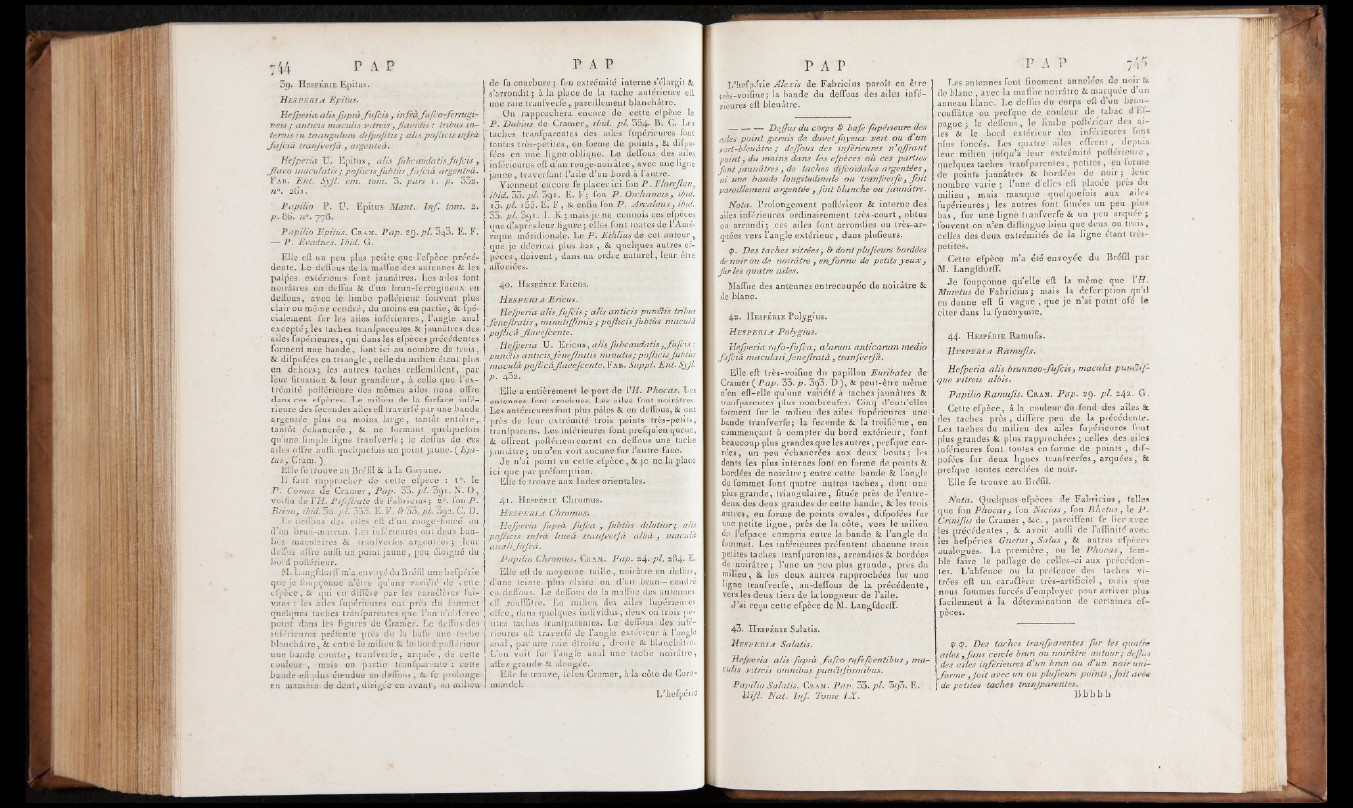 744 P A P
39. HESPÉRIE Epitus.
HESPERIA Epitus.
Hesperia alis suprà fuscis, infrà fusco-ferrugi-
neis; anticis maculis vitreis, flavidis : tribus in-
ternis in triangulum dispositis; alis posticis infrà
fasciâ transversâ, argenteâ.
Hesperia U. Epitus, alis subcaudatis fuscis,
flavo maculatis; posticis subtùs fasciâ argenteâ.
FAB. Ent. Syst. em. tom. 3. pars 1. p. 332.
n°. 261.
Papilio P. U. Epitus Mant. Ins. tom. 2.
p. 86. n°. 778.
Papilio Epitus. CRAM. Pap. 29. pl. 343. E. F.
— P. Evadnes. Ibid. G.
Elle est un peu plus petite que l'espèce précé-
dente. Le dessous de la massue des antennes & les
palpes extérieurs sont jaunâtres. Les ailes sont
noirâtres en dessus & d'un brun-ferrugineux en
dessous, avec le limbe postérieur souvent plus
clair ou même cendré, du moins en partie, & spé-
cialement sur les ailes inférieures, l'angle anal
excepté; les taches transparentes & jaunâtres des
ailes supérieures, qui dans les espèces précédentes
forment une bande, sont ici au nombre de trois,
& disposées en triangle, celle du milieu étant plus
en dehors; les autres taches ressemblent, par
leur situation & leur grandeur, à celle que l'ex-
trémité postérieure des mêmes ailes nous offre
dans ces espèces. Le milieu de la surface infé-
rieure des secondes ailes est traversé par une bande
argentée plus ou moins large, tantôt entière,
tantôt échancrée, & ne formant quelquefois
qu'une simple ligne transverse; le dessus de ces
ailes offre aussi quelquefois un point jaune. (Epi-
tus, Cram.)
Elle se trouve au Brésil & à la Guyane.
Il faut rapprocher de cette espèce : 1°. le
P. Comes de Cramer, Pap. 33. pl. 391. N. O,
voisin de l'H. Pisistrate de Fabricius; 2°. son P.
Brino, ibid. 30. pl. 353. E. F. & 33. pl. 392. C. D.
Le dessous des ailes est d'un rouge-foncé ou
d'un brun-marron. Les inférieures ont deux ban-
des maculaires & transverses argentées; leur
dessus offre aussi un point jaune, peu éloigné du
bord postérieur.
M. Langsdorff m'a envoyé du Brésil une hespérie
que je soupçonne n'être qu'une variété de cette
espèce, & qui en diffère par les caractères sui-
vans : les ailes supérieures ont près du sommet
quelques taches transparentes que l'on n'observe
point dans les figures de Cramer. Le dessus des
inférieures présente près de la base une tache
blanchâtre, & entre le milieu & le bord postérieur
une bande courte, transverse, arquée, de cette
couleur, mais en partie transparente : cette
bande est plus étendue en dessous, & se prolonge
en manière de dent, dirigée en avant, au milieu
P A P
de sa courbure; son extrémité interne s'élargit &
s'arrondit; à la place de la tache antérieure est
une raie transverse, pareillement blanchâtre.
On rapprochera encore de cette espèce le
P. Dubius de Cramer, ibid. pl. 354. B. C. Les
taches transparentes des ailes supérieures sont
toutes très-petites, en forme de points, & dispo-
sées en une ligne oblique. Le dessous des ailes
inférieures est d'un rouge-noirâtre, avec une ligne
jaune, traversant l'aile d'un bord à l'autre.
Viennent encore se placer ici son P. Florestan,
ibid. 33. pl. 391. E. F; son P. Orchamus, ibid.
13. pl. 155. E. F, & enfin son P. Arcalaus, ibid.
33. pl. 391. I. K; mais je ne connois ces espèces
que d'après leur figure; elles sont toutes de l'Amé-
rique méridionale. Le P. Ethlius de cet auteur,
que je décrirai plus bas, & quelques autres es-
pèces, doivent, dans un ordre naturel, leur être
associées.
40. HESPÉRIE Ericus.
HESPERIA Ericus.
Hesperia alis fuscis; alis anticis punctis tribus
fenestratis, minutissimis; posticis subtùs maculâ
posticâ flavescente.
Hesperia U. Ericus, alis subcaudatis, fuscis :
punctis anticis fenestratis minutis; posticis subtùs
maculâ posticâ flavescente. FAB. Suppl. Ent. Syst.
p. 432.
Elle a entièrement le port de l'H. Phocus. Les
antennes sont crochues. Les ailes sont noirâtres.
Les antérieures sont plus pâles & en dessous, & ont
près de leur extrémité trois points très-petits,
transparens. Les inférieures sont presqu'en queue,
& offrent postérieurement en dessous une tache
jaunâtre; on n'en voit aucune sur l'autre face.
Je n'ai point vu cette espèce, & je ne la place
ici que par présomption.
Elle se trouve aux Indes orientales.
41. HESPÉRIE Chromus.
HESPERIA Chromus.
Hesperia suprà fusca, subtùs dilutior; alis
posticis infrà lineâ transversâ albâ, maculâ
anali fuscâ.
Papilio Chromus. CRAM. Pap. 24. pl. 284. E.
Elle est de moyenne taille, noirâtre en dessus,
d'une teinte plus claire ou d'un brun-cendré
en dessous. Le dessous de la massue des antennes
est roussâtre. Le milieu des ailes supérieures
offre, dans quelques individus, deux ou trois pe-
tites taches transparentes. Le dessous des infé-
rieures est traversé de l'angle extérieur à l'angle
anal, par une raie étroite, droite & blanchâtre.
L'on voit sur l'angle anal une tache noirâtre,
assez grande & alongée.
Elle se trouve, selon Cramer, à la côte de Coro-
mandel.
L'hespérie
P A P
L'hespérie Alexis de Fabricius paroît en être
très-voisine; la bande du dessous des ailes infé-
rieures est bleuâtre.
— — — Dessus du corps & base supérieure des
ailes point garnis de duvet soyeux vert ou d'un
vert-bleuâtre; dessous des inférieures n'offrant
point, du moins dans les espèces où ces parties
sont jaunâtres, de taches discoïdales argentées,
ni une bande longitudinale ou transverse, soit
pareillement argentée, soit blanche ou jaunâtre.
Nota. Prolongement postérieur & interne des
ailes inférieures ordinairement très-court, obtus
ou arrondi; ces ailes sont arrondies ou très-ar-
quées vers l'angle extérieur, dans plusieurs.
φ. Des taches vitrées, & dont plusieurs bordées
de noir ou de noirâtre, en forme de petits yeux,
sur les quatre ailes.
Massue des antennes entrecoupée de noirâtre &
de blanc.
42. HESPÉRIE Polygius.
HESPERIA Polygius.
Hesperia rufo-fusca; alarum anticarum medio
fasciâ maculari fenestratâ, transversâ.
Elle est très-voisine du papillon Euribates de
Cramer (Pap. 33. p. 393. D), & peut-être même
n'en est-elle qu'une variété à taches jaunâtres &
transparentes plus nombreuses. Cinq d'entr'elles
forment sur le milieu des ailes supérieures une
bande transverse; la seconde & la troisième, en
commençant à compter du bord extérieur, sont
beaucoup plus grandes que les autres, presque car-
rées, un peu échancrées aux deux bouts; les
dents les plus internes sont en forme de points &
bordées de noirâtre; entre cette bande & l'angle
du sommet sont quatre autres taches, dont une
plus grande, triangulaire, située près de l'entre-
deux des deux grandes de cette bande, & les trois
autres, en forme de points ovales, disposées sur
une petite ligne, près de la côte, vers le milieu
de l'espace compris entre la bande & l'angle du
sommet. Les inférieures présentent chacune trois
petites taches transparentes, arrondies & bordées
de noirâtre; l'une un peu plus grande, près du
milieu, & les deux autres rapprochées sur une
ligne transverse, au-dessous de la précédente,
vers les deux tiers de la longueur de l'aile.
J'ai reçu cette espèce de M. Langsdorff.
43. HESPÉRIE Salatis.
HESPERIA Salatis.
Hesperia alis suprà fusco rufescentibus, ma-
culis vitreis omnibus punctiformibus.
Papilio Salatis. CRAM. Pap. 33. pl. 393. E.
Hist. Nat. Ins. Tome IX.
P A P 745
Les antennes sont finement annelées de noir &
de blanc, avec la massue noirâtre & marquée d'un
anneau blanc. Le dessus du corps est d'un brun-
roussâtre ou presque de couleur de tabac d'Es-
pagne; le dessous, le limbe postérieur des ai-
les & le bord extérieur des inférieures sont
plus foncés. Les quatre ailes offrent, depuis
leur milieu jusqu'à leur extrémité postérieure,
quelques taches transparentes, petites, en forme
de points jaunâtres & bordées de noir; leur
nombre varie; l'une d'elles est placée près du
milieu, mais manque quelquefois aux ailes
supérieures; les autres sont situées un peu plus
bas, sur une ligne transverse & un peu arquée;
souvent on n'en distingue bien que deux ou trois,
celles des deux extrémités de la ligne étant très-
petites.
Cette espèce m'a été envoyée du Brésil par
M. Langsdorff.
Je soupçonne qu'elle est la même que l'H.
Muretus de Fabricius; mais la description qu'il
en donne est si vague, que je n'ai point osé le
citer dans la synonymie.
44. HESPÉRIE Ramusis.
HESPERIA Ramusis.
Hesperia alis brunneo-fuscis, maculis punctis-
que vitreis albis.
Papilio Ramusis. CRAM. Pap. 29. pl. 242. G.
Cette espèce, à la couleur du fond des ailes &
des taches près, diffère peu de la précédente.
Les taches du milieu des ailes supérieures sont
plus grandes & plus rapprochées; celles des ailes
inférieures sont toutes en forme de points, dis-
posées sur deux lignes transverses, arquées, &
presque toutes cerclées de noir.
Elle se trouve au Brésil.
Nota. Quelques espèces de Fabricius, telles
que son Phocus, son Nicias, son Rhetus, le P.
Crinisus de Cramer, &c., paroissent se lier avec
les précédentes, & avoir aussi de l'affinité avec
les hespéries Gnetus, Salus, & autres espèces
analogues. La première, ou le Phocus, sem-
ble faire le passage de celles-ci aux précéden-
tes. L'absence ou la présence des taches vi-
trées est un caractère très-artificiel, mais que
nous sommes forcés d'employer pour arriver plus
facilement à la détermination de certaines es-
pèces.
φ φ. Des taches transparentes sur les quatre
ailes, sans cercle brun ou noirâtre autour; dessus
des ailes inférieures d'un brun ou d'un noir uni-
forme, soit avec un ou plusieurs points, soit avec
de petites taches transparentes.
Bbbbb